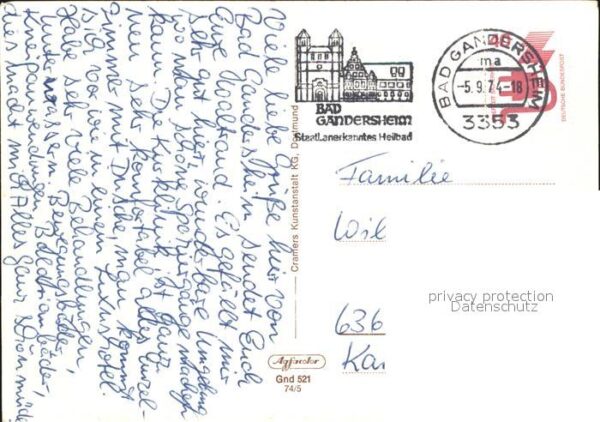 Viele liebe Grüße hier von
Bad Gandersheim sendet Euch
Eure Waltraud. Es gefällt mir
sehr gut hier, wunderbare Umgebung
wo man schöne Spaziergänge machen
kann. Die Kurklinik ist ganz
neu. Sehr komfortabel alles Einzel-
zimmer mit Dusche, man kommt
sich vor wie in einem Luxushotel.
Habe sehr viele Behandlungen,
Bewegungsbäder,
Kneippanwendungen,
dies macht Alles ganz schön müde
Cramers Kunstanstalt KG, Dortmund
Agfacolor
Gnd 521
74/5
BAD
GANDERSHEIM
Staatl. anerkanntes Heilbad
BAD GANDERSHEIM
ma
-5.9.74-18
3353
DEUTSCHE BUNDESPOST
Familie
Wil
636
Kar
privacy protection
Datenschutz